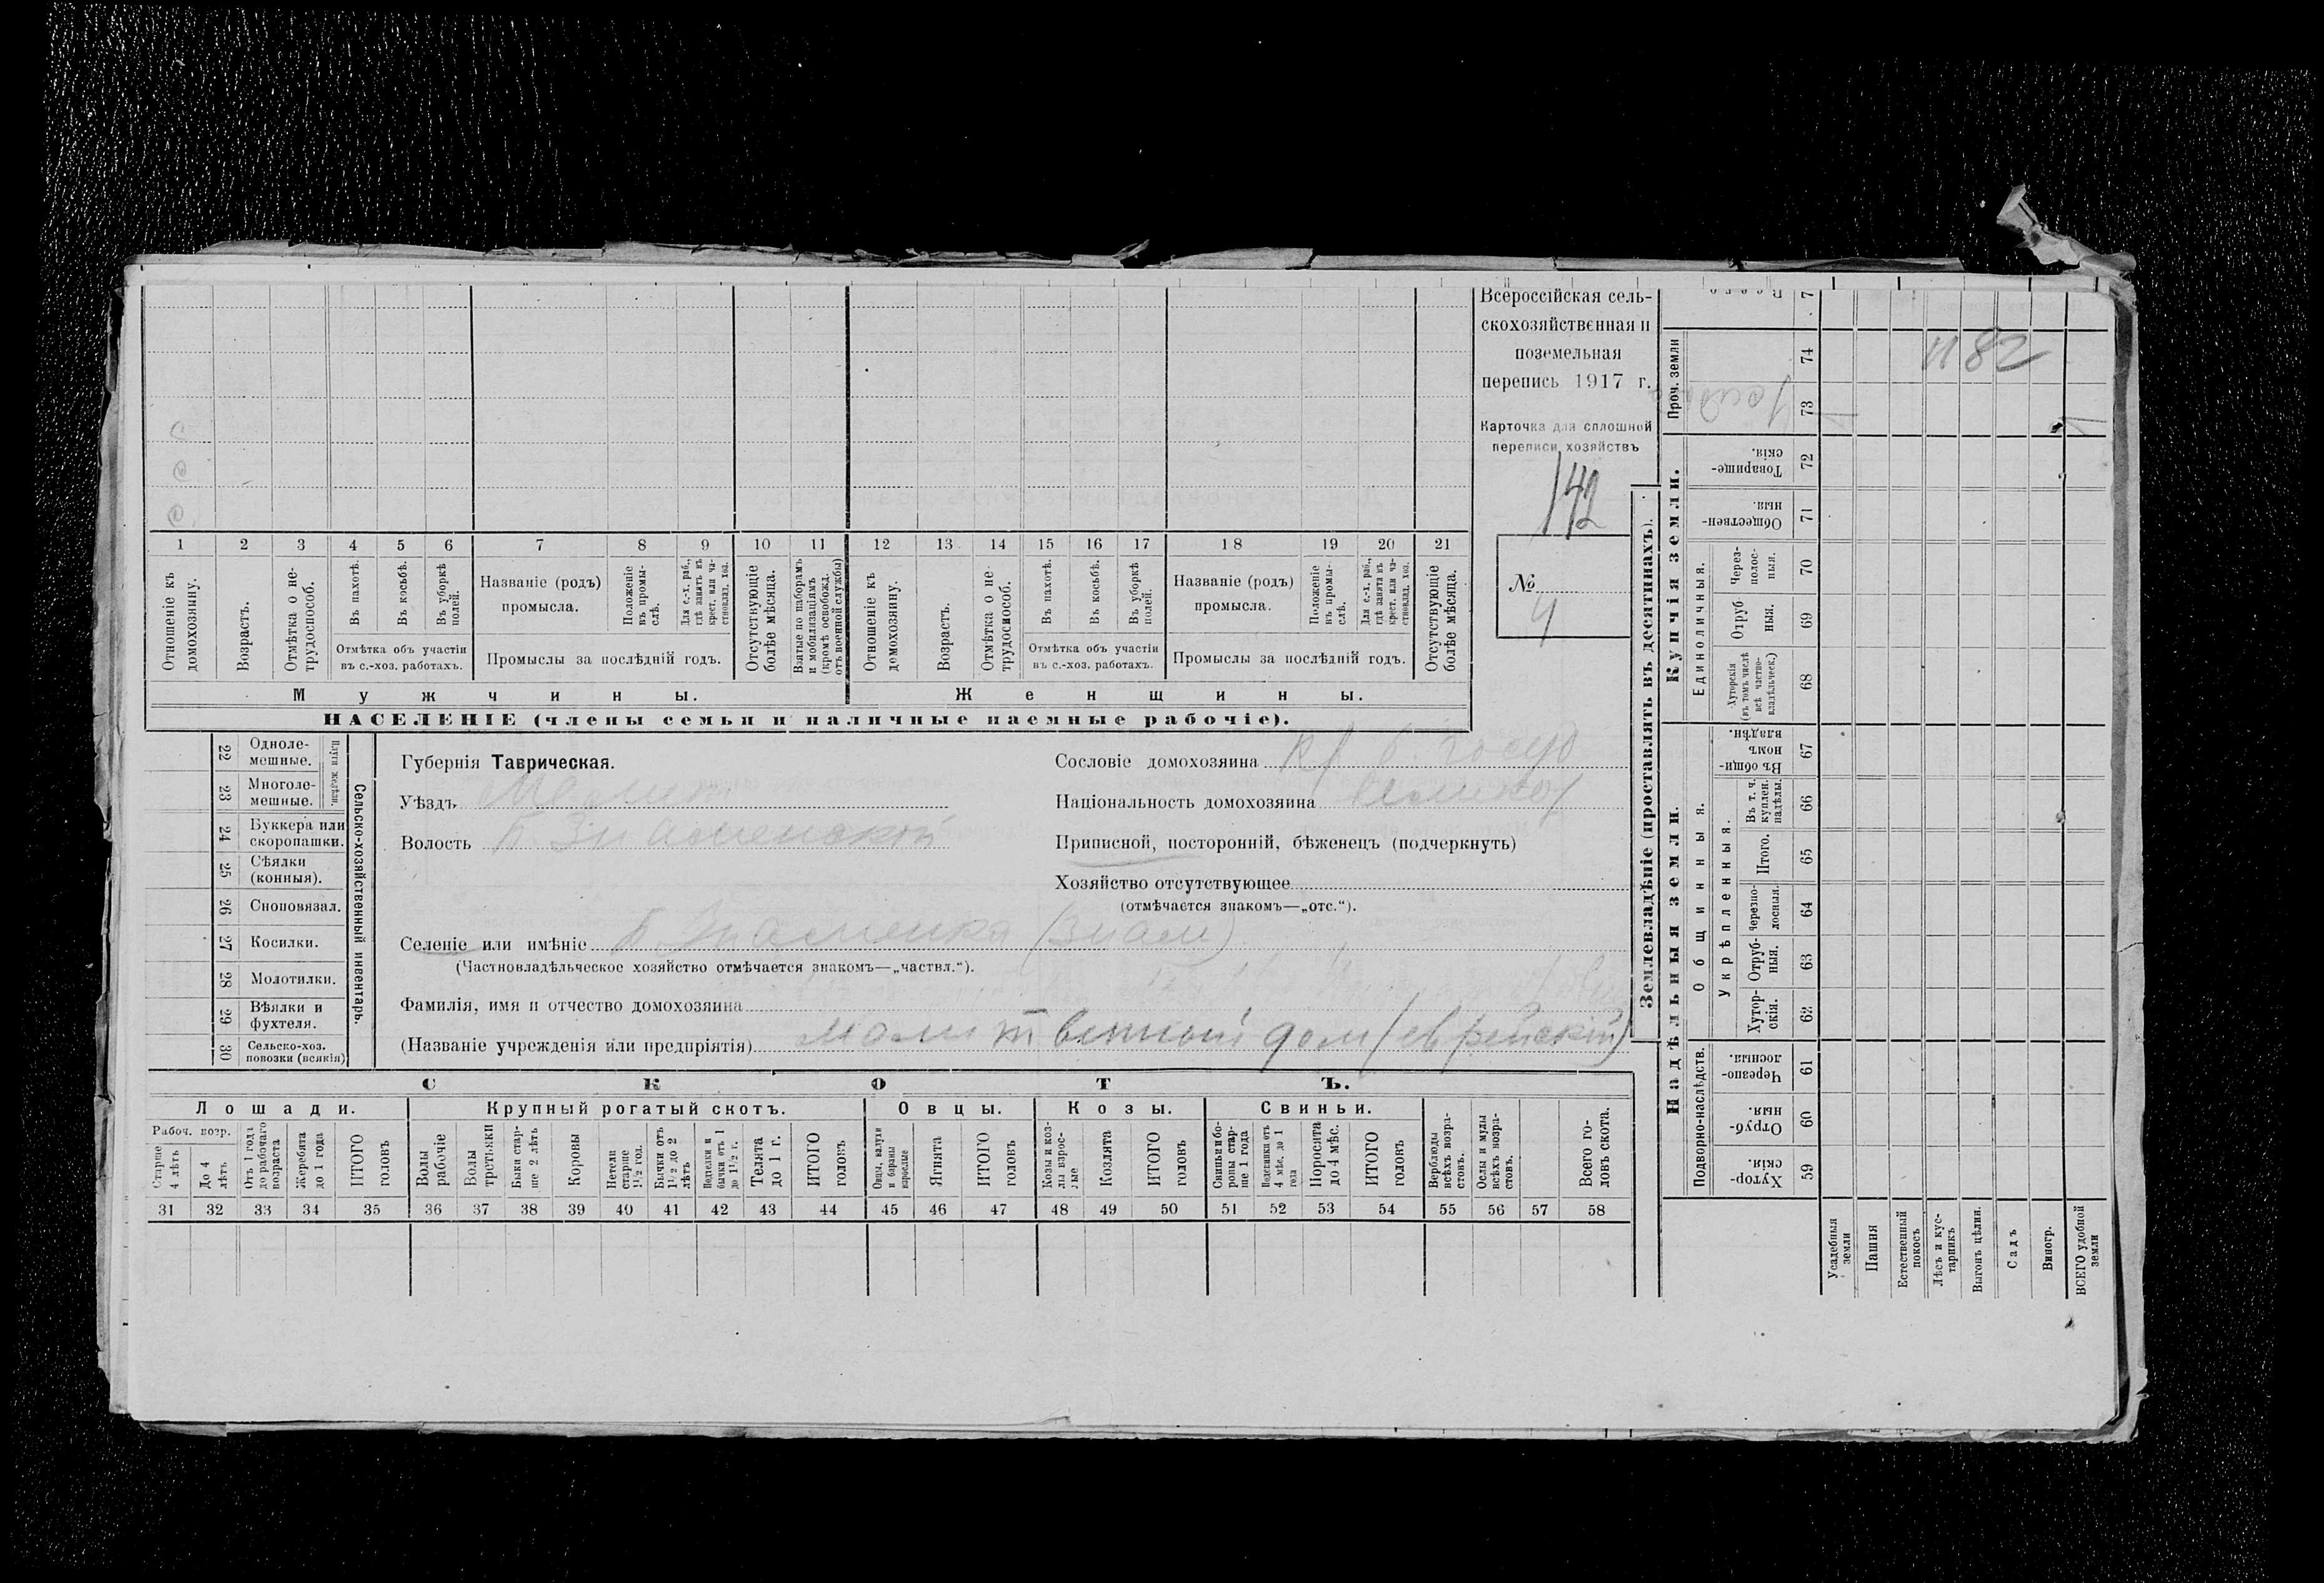 Всероссійская сель-
скохозяйственная и
поземельная
перепись 1917 г.
Карточка для сплошной
переписи хозяйствъ
142
№
4
1 2 3 4 5 6 7 8 9 10 11 12 13 14 15 16 17 18 19 20 21
Отношеніе къ домохозяину.
Возрастъ.
Отмѣтка о не-трудоспособ.
Въ пахотѣ.
Въ косьбѣ.
Въ уборкѣ полей.
Отмѣтка объ участіи
въ с.-хоз. работахъ.
Названіе (родъ)
промысла.
Положеніе въ промы-слѣ.
Для с.-х. раб., гдѣ занятъ въ крест. или ча-стновлад. хоз.
Промыслы за послѣдній годъ.
Отсутствующіе болѣе мѣсяца.
Взятые по наборамъ и мобилизаціямъ (кромѣ освобожд. отъ военной службы)
Отношеніе къ домохозяину.
Возрастъ.
Отмѣтка о не-трудоспособ.
Въ пахотѣ.
Въ косьбѣ.
Въ уборкѣ полей.
Отмѣтка объ участіи
въ с.-хоз. работахъ.
Названіе (родъ)
промысла.
Положеніе въ промы-слѣ.
Для с.-х. раб., гдѣ занята въ крест. или ча-стновлад. хоз.
Промыслы за послѣдній годъ.
Отсутствующіе болѣе мѣсяца.
Мужчины.
Женщины.
НАСЕЛЕНІЕ (члены семьи и наличные наемные рабочіе).
22 Одноле-мешные.
23 Многоле-мешные.
24 Буккера или скоропашки.
25 Сѣялки (конныя).
26 Сноповязал.
27 Косилки.
28 Молотилки.
29 Вѣялки и фухтеля.
30 Сельско-хоз. повозки (всякія)
Сельско-хозяйственный инвентарь.
Губернія Таврическая.
Уѣздъ Мелит
Волость Б. Знаменской
Сословіе домохозяина кр б. госуд
Національность домохозяина
Приписной, посторонній, бѣженецъ (подчеркнуть)
Хозяйство отсутствующее
(отмѣчается знакомъ—„отс.“).
Селеніе или имѣніе Б Знаменка (Знам)
(Частновладѣльческое хозяйство отмѣчается знакомъ—„частвл.“).
Фамилія, имя и отчество домохозяина
(Названіе учрежденія или предпріятія) молитвенный дом (еврейскій)
СКОТЪ.
Лошади.
Крупный рогатый скотъ.
Овцы.
Козы.
Свиньи.
Рабоч. возр.
Старше 4 лѣтъ
До 4 лѣтъ
Отъ 1 года до рабочаго возраста
Жеребята до 1 года
ИТОГО головъ
Волы рабочіе
Волы третьяки
Быки стар-ше 2 лѣтъ
Коровы
Нетели старше 1½ год.
Бычки отъ 1½ до 2 лѣтъ
Подтелки и бычки отъ 1 до 1½ г.
Телята до 1 г.
ИТОГО головъ
Овцы, валухи и бараны взрослые
Ягнята
ИТОГО головъ
Козы и коз-лы взрос-лые
Козлята
ИТОГО головъ
Свиньи и бо-ровы стар-ше 1 года
Подсвинки отъ 4 мѣс. до 1 года
Поросята до 4 мѣс.
ИТОГО головъ
Верблюды всѣхъ возра-стовъ.
Ослы и мулы всѣхъ возра-стовъ.
Всего го-ловъ скота.
31 32 33 34 35 36 37 38 39 40 41 42 43 44 45 46 47 48 49 50 51 52 53 54 55 56 57 58
Землевладѣніе (проставлять въ десятинахъ).
Проч. земли
74
73
1182
Купчія земли.
Товарище-скія. 72
Обществен-ныя. 71
Единоличныя.
Через-полос-ныя. 70
Отруб-ныя. 69
Хуторскія (въ томъ числѣ всѣ частно-владѣльческ.) 68
Надѣльныя земли.
Общинныя.
Въ общи-номъ владѣн. 67
Укрѣпленныя.
Въ т. ч. куплен. надѣлы. 66
Итого. 65
Черезпо-лосныя. 64
Отруб-ныя. 63
Хутор-скія. 62
Подворно-наслѣдств.
Черезпо-лосныя. 61
Отруб-ныя. 60
Хутор-скія. 59
Усадебныя земли
Пашня
Естественный покосъ
Лѣсъ и кус-тарникъ
Выгонъ цѣлин.
Садъ
Виногр.
ВСЕГО удобной земли